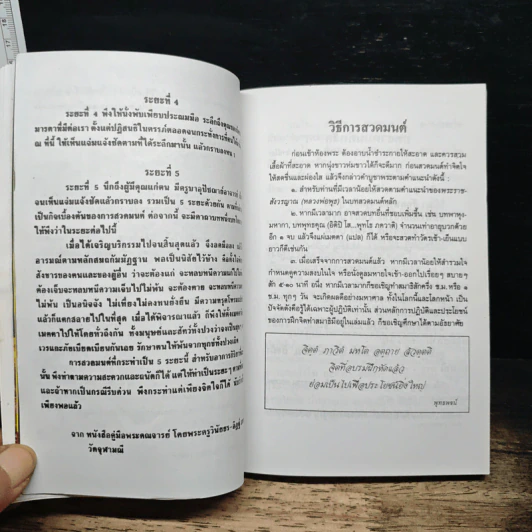 ระยะที่ 4
ระยะที่ 4 พึงให้นั่งพับเพียบประณมมือ ระลึกถึงคุณของ
มารดาที่มีต่อเรา ตั้งแต่ปฏิสนธิในครรภ์ตลอดจนกระทั่งการที่
ณ ที่นี้ ให้เห็นแจ่มแจ้งชัดตามที่ได้ระลึกมานั้น แล้วกราบลงหน
ระยะที่ 5
ระยะที่ 5 นึกถึงผู้มีคุณแก่ตน มีครูบาอุปัชฌาย์อาจารย์
จนเห็นแจ่มแจ้งชัดแล้วกราบลง รวมเป็น 5 ระยะด้วยกัน
เป็นกิจเบื้องต้นของการสวดมนต์ ต่อจากนี้ จะมีคาถาบทหรือ
ที่พึงว่าในระยะต่อไปนี้
เมื่อได้เจริญบริกรรมไปจนสิ้นสุดแล้ว
อารมณ์ตามหลักสมถกัมมัฏฐาน พอเป็นนิสัยไว้บ้าง คือตั้ง
สังขารของตนและของผู้อื่น ว่าจะต้องแก่ จะหลบหนีความแก่
ต้องเจ็บจะหลบหนีความเจ็บไปไม่พ้น จะต้องตาย จะหลบหนี
ไม่พ้น เป็นอนิจจัง ไม่เที่ยงไม่คงทนยั่งยืน มีความทรุดโทรม
แล้วก็แตกสลายไปในที่สุด เมื่อได้พิจารณาแล้ว ก็พึงตั้ง
เมตตาไปให้โดยทั่วถึงกัน ทั้งมนุษย์และสัตว์ทั้งปวงว่าจงเป็นสุข
เวรและภัยเบียดเบียนกันเลย รักษาตนให้พ้นจากทุกข์ทั้งปวง
การสวดมนต์ที่กระทำเป็น 5 ระยะนี้ สำหรับอาการกิริยา
นั้น พึงทำตามความสะดวกและถนัดก็ได้ แต่ให้ทำเป็นระยะๆ
และถ้าหากเป็นกรณีรีบด่วน พึงกระทำแต่เพียงจิตใจก็ได้
เพียงพอแล้ว
จาก หนังสือคู่มือพระคณจารย์ โดยพระครูวินัยธร
วัดจุฬามณี
วิธีการสวดมนต์
ก่อนเข้าห้องพระ ต้องอาบน้ำชำระกายให้สะอาด และควรสวม
เสื้อผ้าที่สะอาด หากนุ่งขาวห่มขาวได้ก็จะดีมาก ก่อนสวดมนต์ทำจิตใจ
ให้สดชื่นและผ่องใส แล้วจึงกล่าวคำบูชาพระตามคำแนะนำดังนี้ :
๑. สำหรับท่านที่มีเวลาน้อยให้สวดตามคำแนะนำของพระราช-
สังวรญาณ (หลวงพ่อพุธ) ในบทสวดมนต์หลัก
๒. หากมีเวลามาก อาจสวดบทอื่นที่ชอบเพิ่มขึ้น เช่น บทพาหุง-
มหากา, บทพุทธคุณ (อิติปิ โส...พุทโธ ภควาติ) จำนวนเท่าอายุบวกด้วย
อีก ๑ จบ แล้วจึงแผ่เมตตา (แปล) ก็ได้ หรือจะสวดทำวัตรเช้า-เย็นแบบ
ยาวก็ดีเช่นกัน
๓. เมื่อเสร็จจากการสวดมนต์แล้ว หากมีเวลาน้อยให้สำรวมใจ
กำหนดดูความสงบในใจ หรือนั่งดูลมหายใจเข้า-ออกไปเรื่อยๆ สบายๆ
สัก ๕-๑๐ นาที หากมีเวลามากก็ขอเชิญทำสมาธิสักครึ่ง ช.ม. หรือ ๑
ช.ม. ทุกๆ วัน จะเกิดผลดีอย่างมหาศาล ทั้งในโลกนี้และโลกหน้า เป็น
ปัจจัตตังคือรู้ได้เฉพาะผู้ปฏิบัติเท่านั้น ส่วนหลักการปฏิบัติและประโยชน์
ของการฝึกจิตทำสมาธิมีอยู่ในเล่มแล้ว ก็ขอเชิญศึกษาได้ตามอัธยาศัย
จิตฺตํ ภาวิตํ มหโต อตฺถาย สํวตฺตติ
จิตที่อบรมฝึกหัดแล้ว
ย่อมเป็นไปเพื่อประโยชน์ยิ่งใหญ่
พุทธพจน์